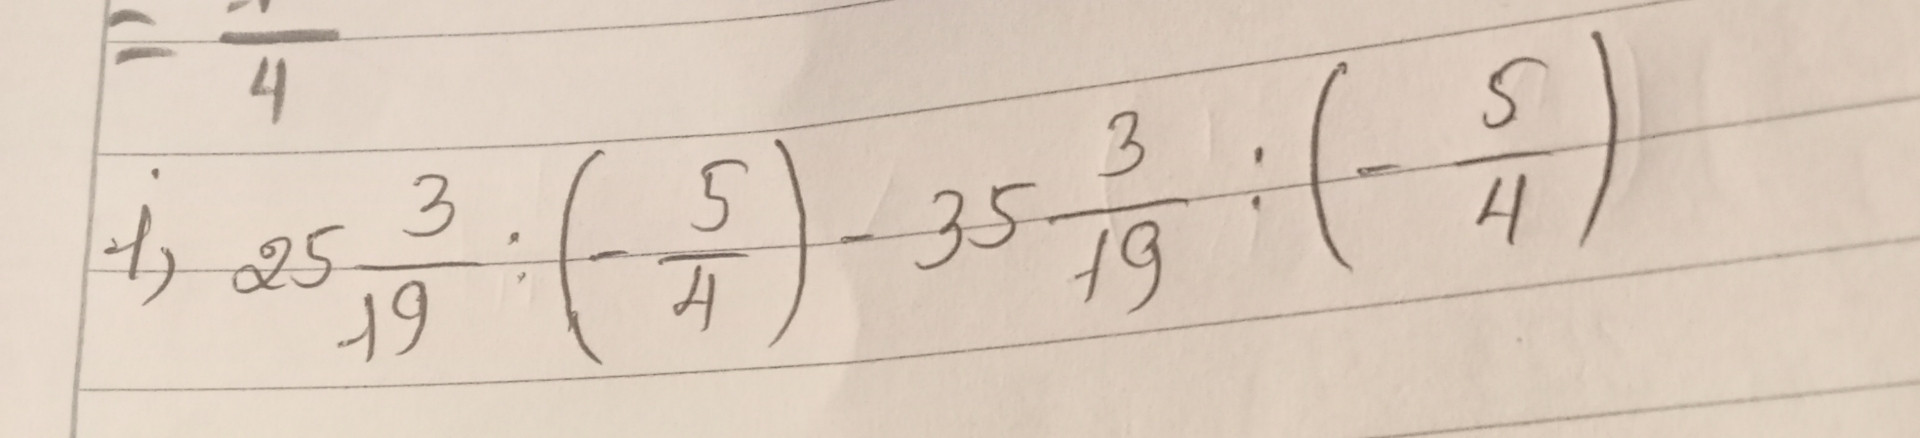 = /4
i, 25 3/19 : (- 5/4) - 35 3/19 : (- 5/4)